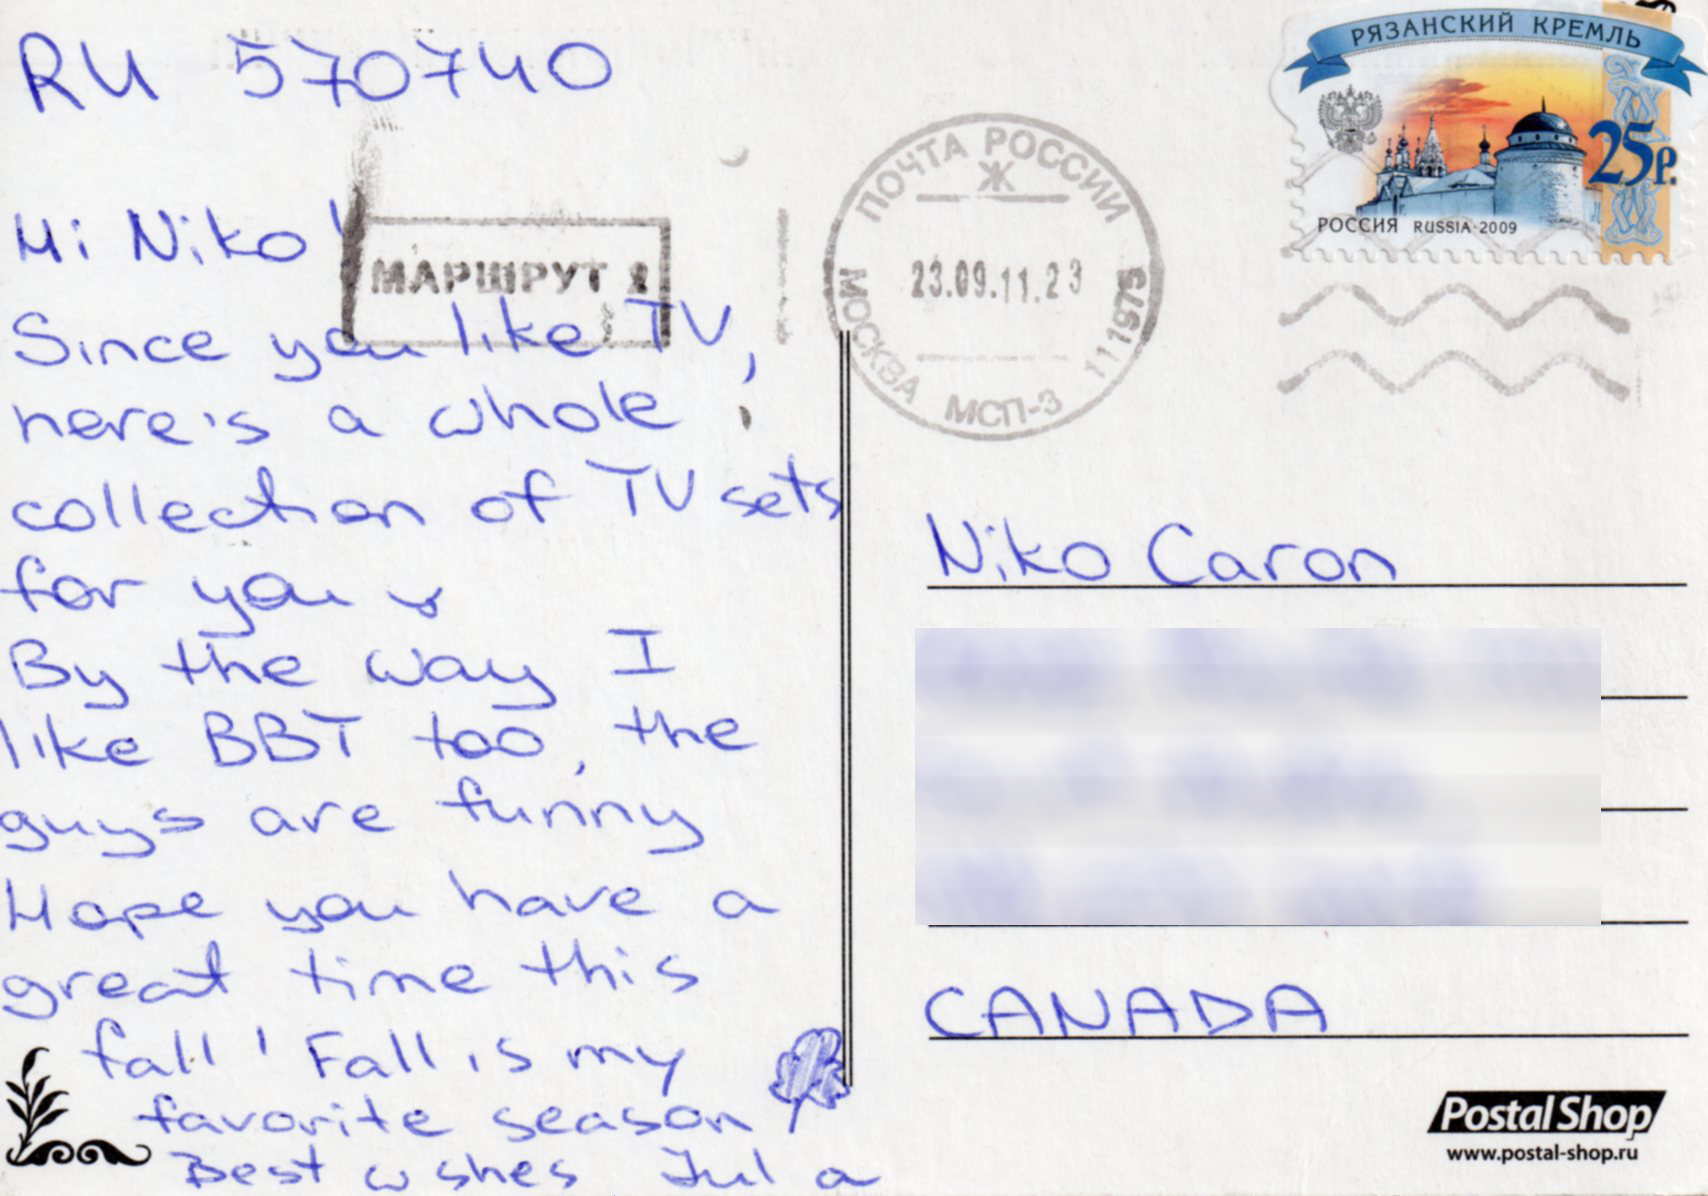 RU 570740
Hi Niko!
Since you like TV,
here's a whole
collection of TV sets
for you
By the way I
like BBT too, the
guys are funny
Hope you have a
great time this
fall! Fall is my
favorite season
Best wishes Julia
МАРШРУТ 2
ПОЧТА РОССИИ
Ж
23.09.11.23
МОСКВА МСП-3 111975
РЯЗАНСКИЙ КРЕМЛЬ
25р.
РОССИЯ RUSSIA·2009
Niko Caron
CANADA
Postal Shop
www.postal-shop.ru